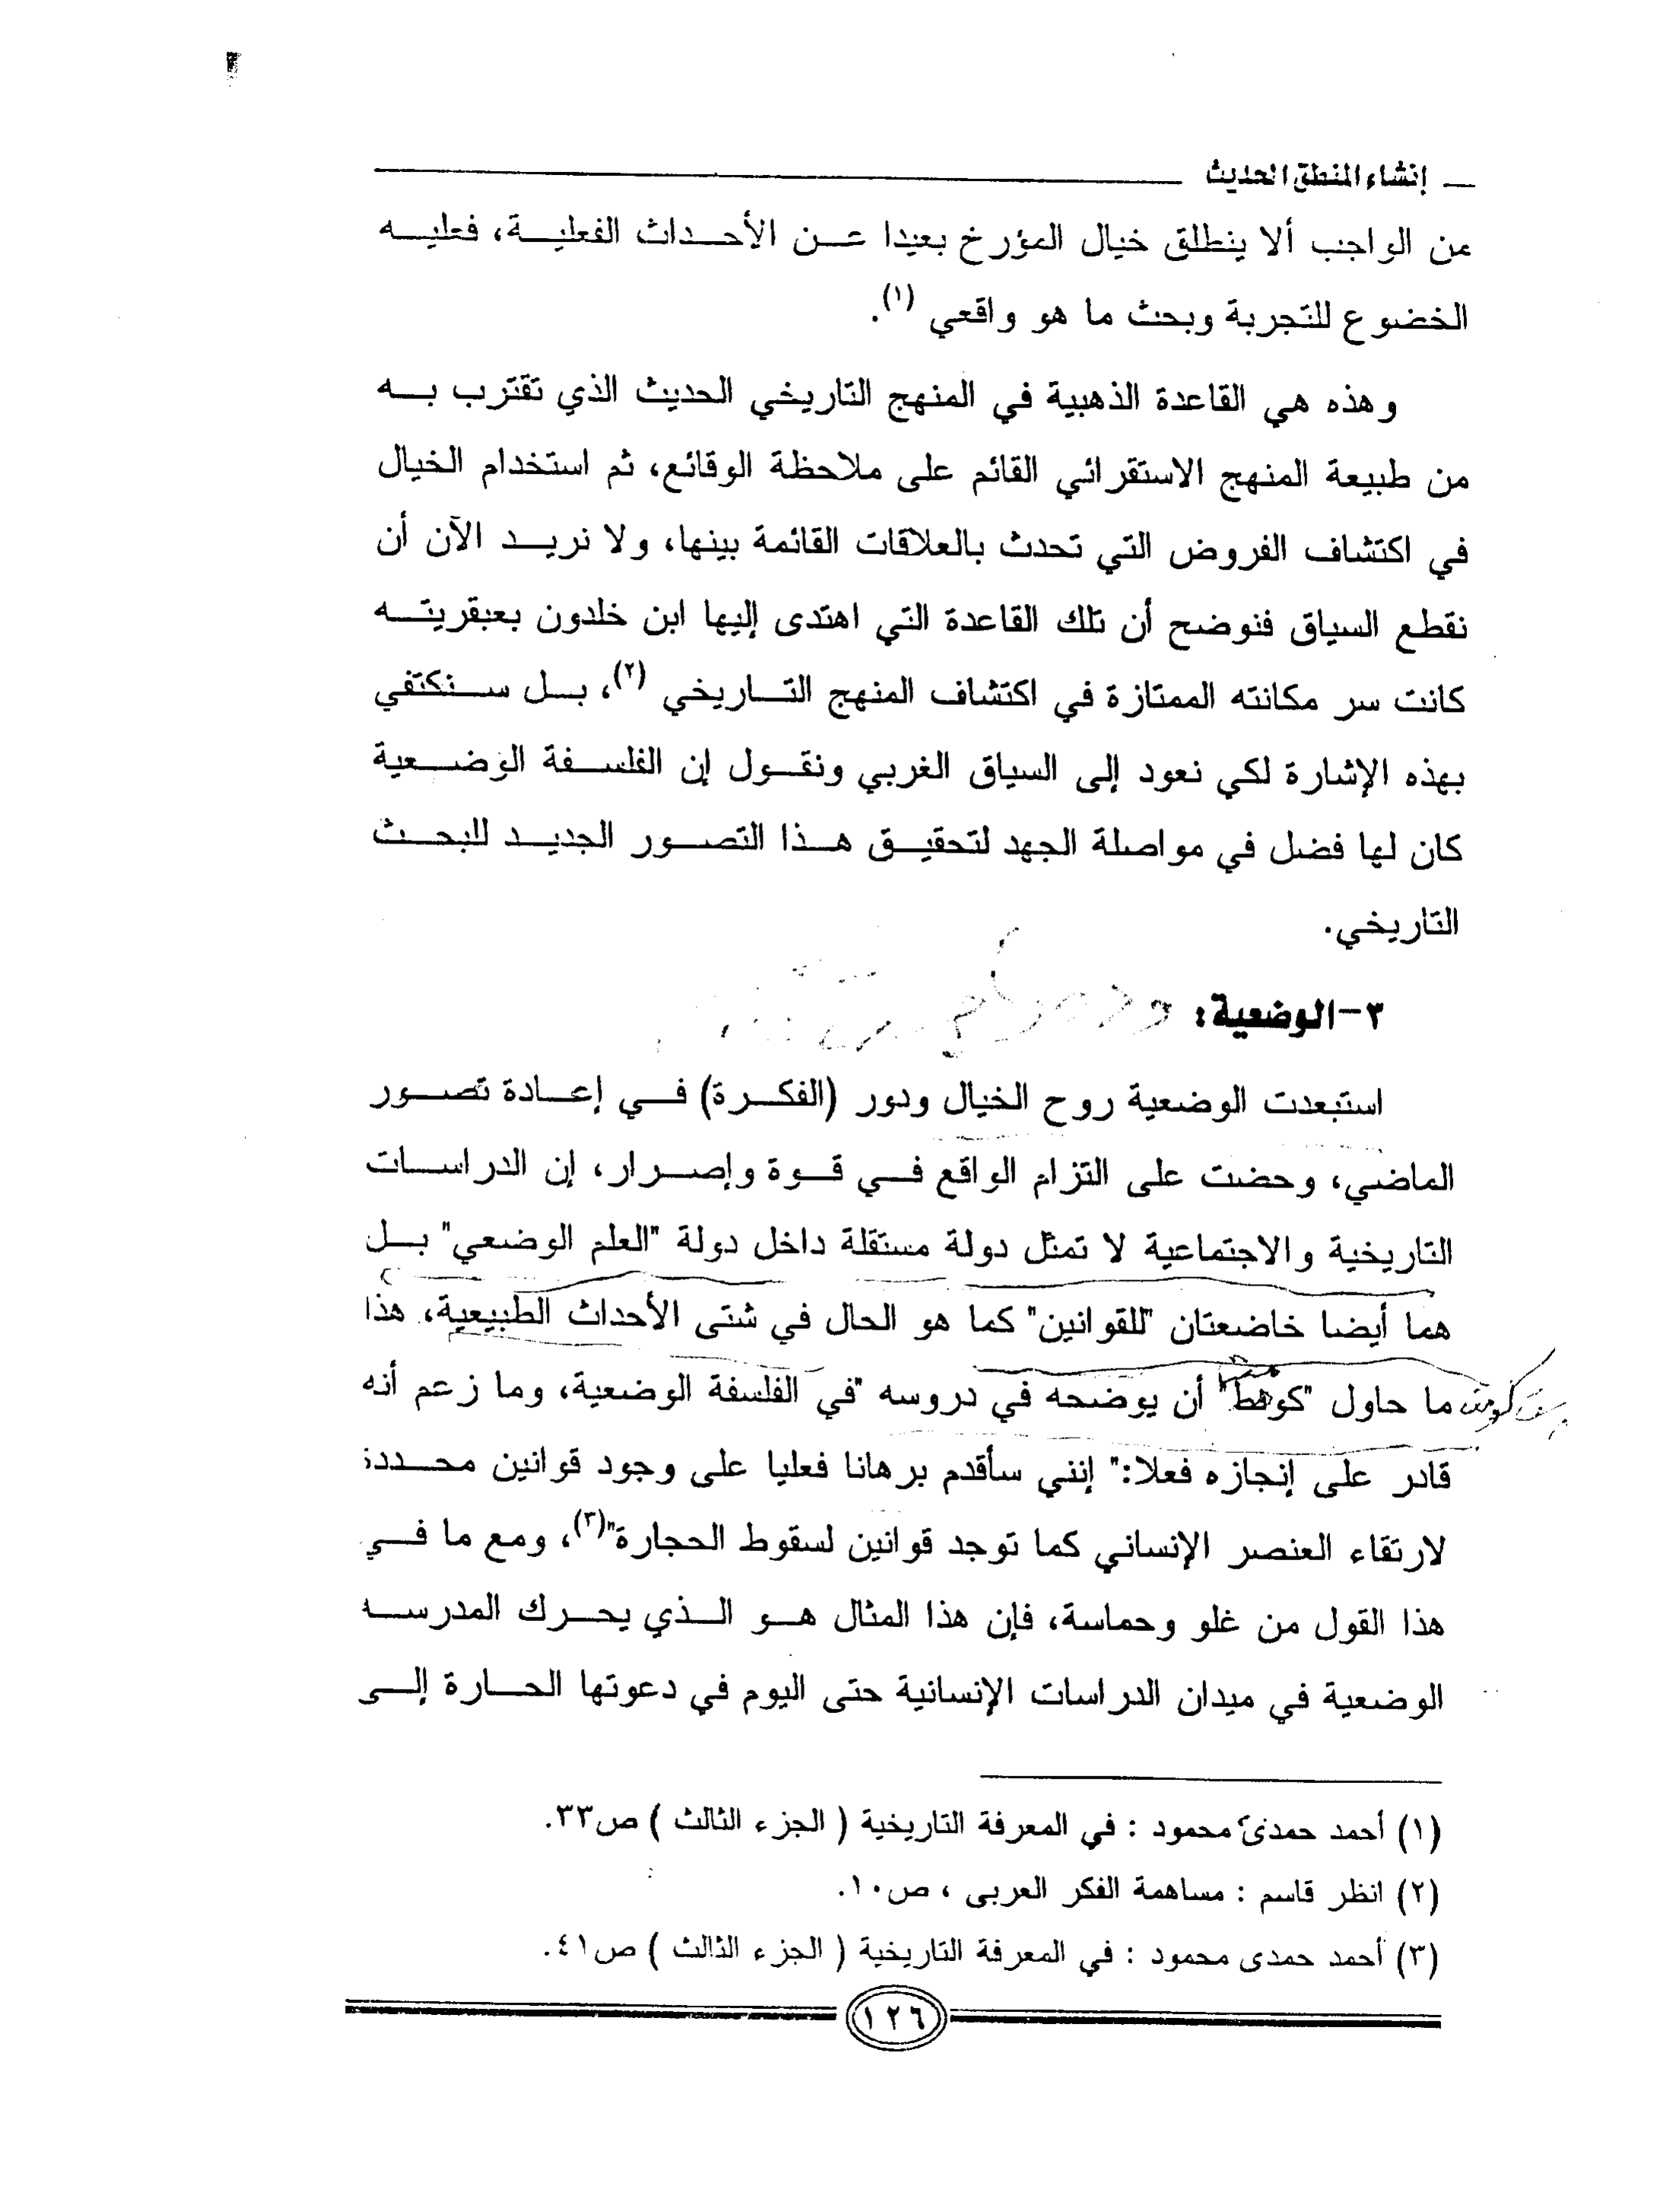 إنشاء المنطق الحديث
من الواجب ألا ينطلق خيال المؤرخ بعيدا عن الأحداث الفعلية، فعليه
الخضوع للتجربة وبحث ما هو واقعي (١).
وهذه هي القاعدة الذهبية في المنهج التاريخي الحديث الذي تقترب به
من طبيعة المنهج الاستقرائي القائم على ملاحظة الوقائع، ثم استخدام الخيال
في اكتشاف الفروض التي تحدث بالعلاقات القائمة بينها، ولا نريد الآن أن
نقطع السياق فنوضح أن تلك القاعدة التي اهتدى إليها ابن خلدون بعبقريته
كانت سر مكانته الممتازة في اكتشاف المنهج التاريخي (٢)، بل سنكتفي
بهذه الإشارة لكي نعود إلى السياق الغربي ونقول إن الفلسفة الوضعية
كان لها فضل في مواصلة الجهد لتحقيق هذا التصور الجديد للبحث
التاريخي.
٣-الوضعية:
استبعدت الوضعية روح الخيال ودور (الفكرة) في إعادة تصور
الماضي، وحضت على التزام الواقع في قوة وإصرار، إن الدراسات
التاريخية والاجتماعية لا تمثل دولة مستقلة داخل دولة "العلم الوضعي" بل
هما أيضا خاضعتان "للقوانين" كما هو الحال في شتى الأحداث الطبيعية، هذا
ما حاول أن يوضحه في دروسه "في الفلسفة الوضعية، وما زعم أنه
قادر على إنجازه فعلا:" إنني سأقدم برهانا فعليا على وجود قوانين محددة
لارتقاء العنصر الإنساني كما توجد قوانين لسقوط الحجارة"(٣)، ومع ما في
هذا القول من غلو وحماسة، فإن هذا المثال هو الذي يحرك المدرسه
الوضعية في ميدان الدراسات الإنسانية حتى اليوم في دعوتها الحارة إلى
(١) أحمد حمدى محمود : في المعرفة التاريخية ( الجزء الثالث ) ص٣٣.
(٢) انظر قاسم : مساهمة الفكر العربى ، ص١٠.
(٣) أحمد حمدى محمود : في المعرفة التاريخية ( الجزء الثالث ) ص٤١.
١٢٦